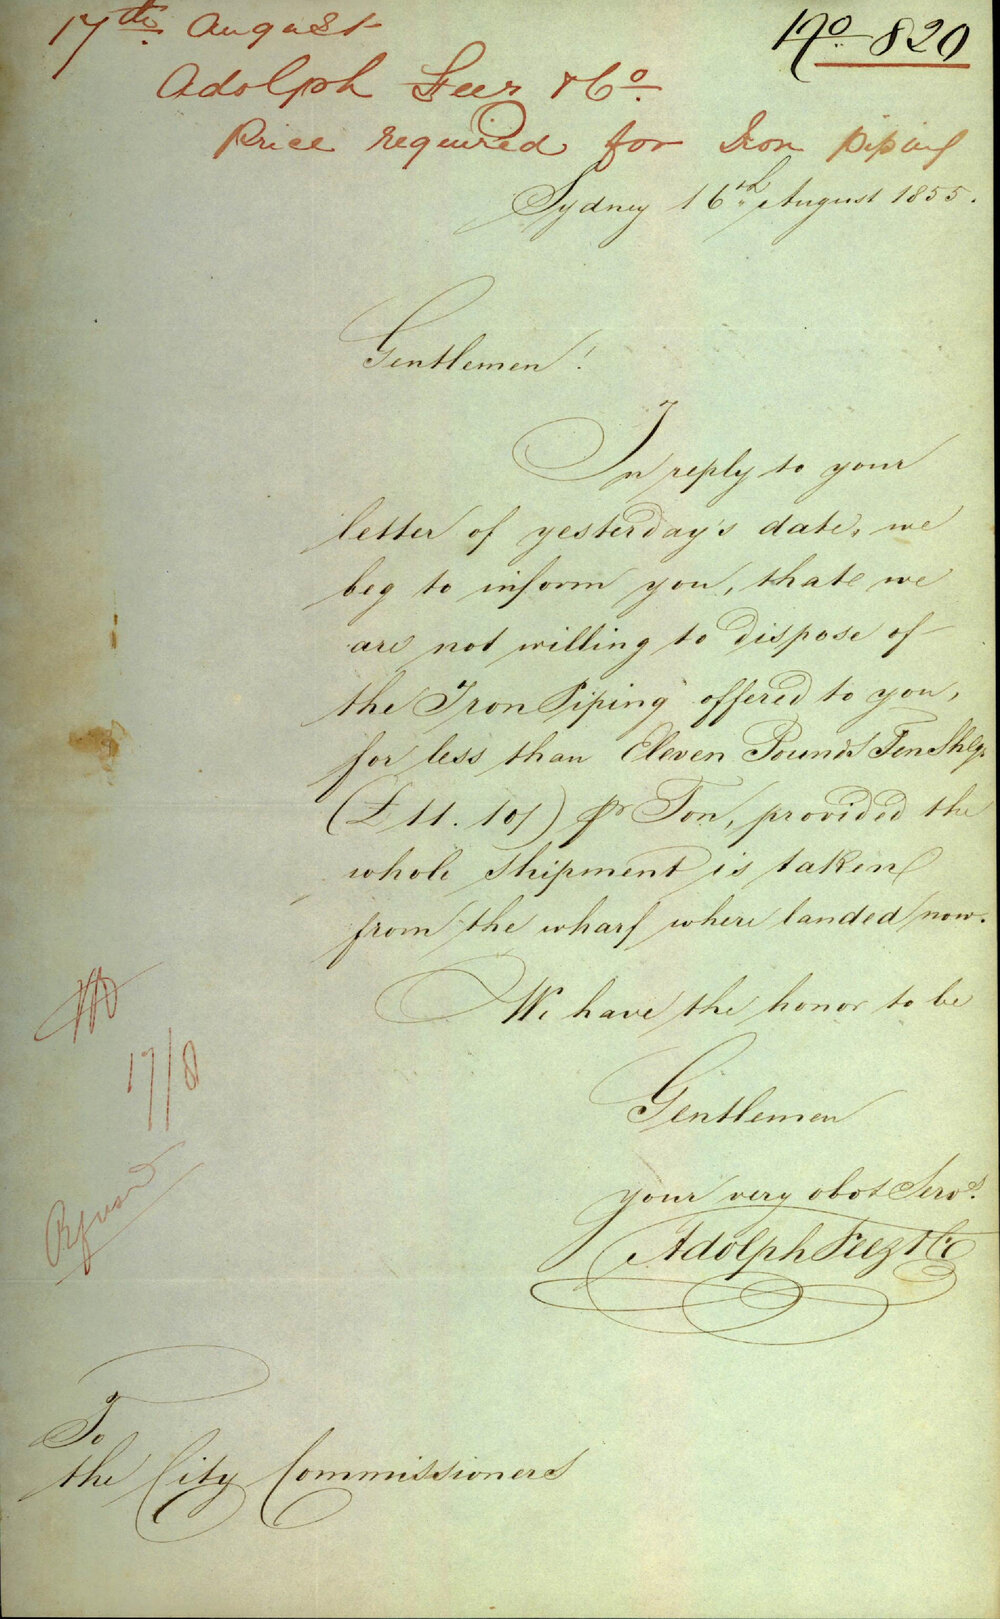 17th. August
No. 820
Adolph Feer & Co.
Price required for Iron piping
Sydney 16th August 1855.
Gentlemen!
In reply to your
letter of yesterday's date, we
beg to inform you, that we
are not willing to dispose of
the Iron Piping offered to you,
for less than Eleven Pounds Ten Shlgs
(£11.10/) pr Ton, provided the
whole shipment is taken
from the wharf where landed now.
We have the honor to be
Gentlemen
your very obdt Servts.
Adolph Feez & Co
17/8
To
the City Commissioners